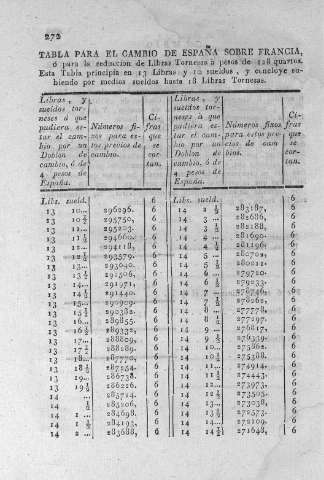 272
TABLA PARA EL CAMBIO DE ESPAÑA SOBRE FRANCIA,
ó para la reduccion de Libras Tornesas á pesos de 128 quartos.
Esta Tabla principia en 13 Libras y 10 sueldos, y concluye su-
biendo por medios sueldos hasta 18 Libras Tornesas.
Libras, y
sueldos tor-
neses á que
pudiera es-
tar el cam-
bio por un
Doblon de
4 pesos de
España.
Números fi-
xos para es-
tos precios de
cambio.
Ci-
fras
que
se
cor-
tan.
Libras, y
sueldos tor-
neses á que
pudiera es-
tar el cam-
bio por un
Doblon de
cambio, ó de
4 pesos de
España.
Números fixos
para estos pre-
cios de cam-
bios.
Ci-
fras
que
se
cor-
tan.
Libs. sueld. Libs. sueld.
13 10... 296296. 6 14 2 ½ 283187, 6
13 10 ½ 295750, 6 14 3 ... 282686, 6
13 11... 295203. 6 14 3 ½ 282188, 6
13 11 ½ 294660. 6 14 4 ... 281690. 6
13 12... 294118. 6 14 4 ½ 281196. 6
13 12 ½ 293579. 6 14 5 ... 280702, 6
13 13... 293040. 6 14 5 ½ 280212. 6
13 13 ½ 292506, 6 14 6 ... 279720. 6
13 14... 291971, 6 14 6 ½ 279233. 6
13 14 ½ 291440. 6 14 7 ... 278746, 6
13 15... 290909. 6 14 7 ½ 278262, 6
13 15 ½ 290382. 6 14 8 ... 277778. 6
13 16... 289855. 6 14 8 ½ 277297. 6
13 16 ½ 289332, 6 14 9 ... 276817, 6
13 17... 288809, 6 14 9 ½ 276339. 6
13 17 ½ 288289. 6 14 10... 275862. 6
13 18... 287770. 6 14 10 ½ 275388. 6
13 18 ½ 287254. 6 14 11... 274914. 6
13 19... 286738. 6 14 11 ½ 274443. 6
13 19 ½ 286226. 6 14 12... 273973. 6
14 ... 285714. 6 14 12 ½ 273505. 6
14 ½ 285206, 6 14 13... 273038, 6
14 1 ... 284698, 6 14 13 ½ 272573. 6
14 1 ½ 284193, 6 14 14... 272109. 6
14 2 ... 283688, 6 14 14 ½ 271648, 6